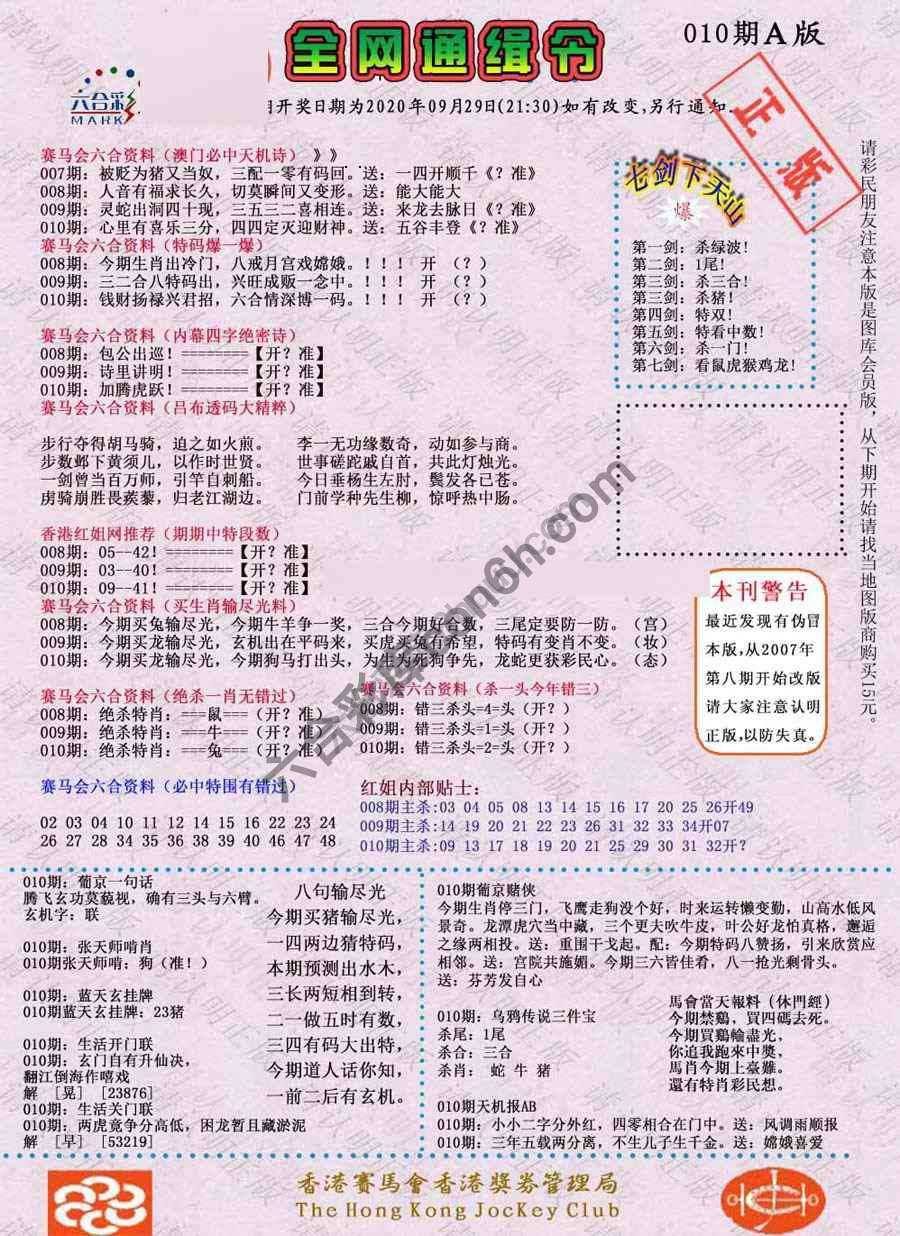 全网通缉令
010期A版
六合彩
MARK
期开奖日期为2020年09月29日(21:30)如有改变,另行通知.
正版
赛马会六合资料（澳门必中天机诗）》》
007期：被贬为猪又当奴，三配一零有码回。送：一四开顺千《？准》
008期：人音有福求长久，切莫瞬间又变形。送：能大能大
009期：灵蛇出洞四十现，三五三二喜相连。送：来龙去脉日《？准》
010期：心里有喜乐三分，四四定灭迎财神。送：五谷丰登《？准》
赛马会六合资料（特码爆一爆）
008期：今期生肖出冷门，八戒月宫戏嫦娥。！！！ 开 （？）
009期：三二合八特码出，兴旺成贩一念中。！！！ 开 （？）
010期：钱财扬禄兴君招，六合情深博一码。！！！ 开 （？）
赛马会六合资料（内幕四字绝密诗）
008期：包公出巡！========【开？准】
009期：诗里讲明！========【开？准】
010期：加腾虎跃！========【开？准】
赛马会六合资料（吕布透码大精粹）
步行夺得胡马骑，迫之如火煎。 李一无功缘数奇，动如参与商。
步数邺下黄须儿，以作时世贤。 世事磋跎戚自首，共此灯烛光。
一剑曾当百万师，引竿自刺船。 今日垂杨生左肘，鬓发各已苍。
虏骑崩胜畏蒺藜，归老江湖边。 门前学种先生柳，惊呼热中肠。
香港红姐网推荐（期期中特段数）
008期：05--42！========【开？准】
009期：03--40！========【开？准】
010期：09--41！========【开？准】
赛马会六合资料（买生肖输尽光料）
008期：今期买兔输尽光，今期牛羊争一奖，三合今期好合数，三尾定要防一防。（宫）
009期：今期买龙输尽光，玄机出在平码来，买虎买兔有希望，特码有变肖不变。（妆）
010期：今期买龙输尽光，今期狗马打出头，为生为死狗争先，龙蛇更获彩民心。（态）
赛马会六合资料（绝杀一肖无错过）
008期：绝杀特肖：===鼠===（开？准）
009期：绝杀特肖：===牛===（开？准）
010期：绝杀特肖：===兔===（开？准）
赛马会六合资料（杀一头今年错三）
008期：错三杀头=4=头（开？）
009期：错三杀头=1=头（开？）
010期：错三杀头=2=头（开？）
赛马会六合资料（必中特围有错过）
02 03 04 10 11 12 14 15 16 22 23 24
26 27 28 34 35 36 38 39 40 46 47 48
红姐内部贴士：
008期主杀:03 04 05 08 13 14 15 16 17 20 25 26开49
009期主杀:14 19 20 21 22 23 26 31 32 33 34开07
010期主杀:09 13 17 18 19 20 21 25 29 30 31 32开？
七剑下天山
爆
第一剑：杀绿波！
第二剑：1尾！
第三剑：杀三合！
第三剑：杀猪！
第四剑：特双！
第五剑：特看中数！
第六剑：杀一门！
第七剑：看鼠虎猴鸡龙！
本刊警告
最近发现有伪冒
本版,从2007年
第八期开始改版
请大家注意认明
正版,以防失真。
请彩民朋友注意本版是图库会员版，从下期开始请找当地图版商购买15元。
六合彩库bbn6h.com
010期：葡京一句话
腾飞玄功莫藐视，确有三头与六臂。
玄机字：联
010期：张天师啃肖
010期张天师啃：狗（准！）
010期：蓝天玄挂牌
010期蓝天玄挂牌：23猪
010期：生活开门联
010期：玄门自有升仙决，
翻江倒海作嘻戏
解 [晃] [23876]
010期：生活关门联
010期：两虎竟争分高低，困龙暂且藏淤泥
解 [早] [53219]
八句输尽光
今期买猪输尽光，
一四两边猜特码，
本期预测出水木，
三长两短相到转，
二一做五时有数，
三四有码大出特，
今期道人话你知，
一前二后有玄机。
010期葡京赌侠
今期生肖停三门，飞鹰走狗没个好，时来运转懒变勤，山高水低风
景奇。龙潭虎穴当中藏，三个更夫吹牛皮，叶公好龙怕真格，邂逅
之缘两相投。送：重围干戈起。配：今期特码八赞扬，引来欣赏应
相邻。送：宫院共施媚。今期三六皆佳肴，八一抢光剩骨头。
送：芬芳发自心
010期：乌鸦传说三件宝
杀尾：1尾
杀合：三合
杀肖： 蛇 牛 猪
馬會當天報料（休門經）
今期禁鷄，買四碼去死。
今期買鷄輸盡光，
你追我跑來中獎，
馬肖今期上臺難。
還有特肖彩民想。
010期天机报AB
010期：小小二字分外红，四零相合在门中。送：风调雨顺报
010期：三年五载两分离，不生儿子生千金。送：嫦娥喜爱
香港賽馬會香港獎券管理局
The Hong Kong JocKey Club